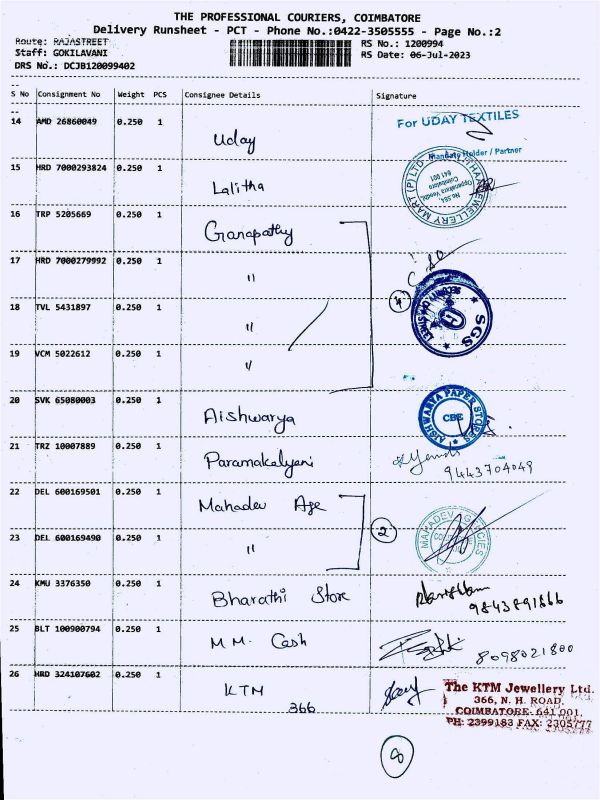 THE PROFESSIONAL COURIERS, COIMBATORE
Delivery Runsheet - PCT - Phone No.:0422-3505555 - Page No.:2
Route: RAJASTREET
RS No.: 1200994
Staff: GOKILAVANI
RS Date: 06-Jul-2023
DRS No.: DCJB120099402
S No Consignment No Weight PCS Consignee Details Signature
14 AMD 26860049 0.250 1 Uday For UDAY TEXTILES
Mandate Holder / Partner
15 HRD 7000293824 0.250 1 Lalitha
16 TRP 5205669 0.250 1 Ganapathy
17 HRD 7000279992 0.250 1 "
4
18 TVL 5431897 0.250 1 " SGS
19 VCM 5022612 0.250 1 "
20 SVK 65080003 0.250 1 Aishwarya AISHWARYA PAPER STORES CBE
21 TRZ 10007889 0.250 1 Paramakalyani 9443704049
22 DEL 600169501 0.250 1 Mahadev Age
2 MAHADEV AGENCIES
23 DEL 600169490 0.250 1 "
24 KMU 3376350 0.250 1 Bharathi Store 9843891866
25 BLT 100900794 0.250 1 M.M. Cash 8098021800
26 HRD 324107602 0.250 1 KTM
366
The KTM Jewellery Ltd.
366, N. H. ROAD,
COIMBATORE- 641 001.
PH: 2399183 FAX: 2305777
8